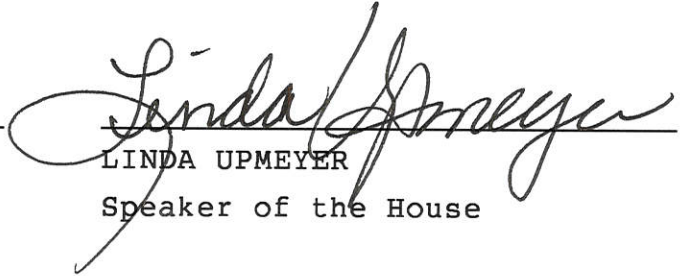 Linda Upmeyer
LINDA UPMEYER
Speaker of the House